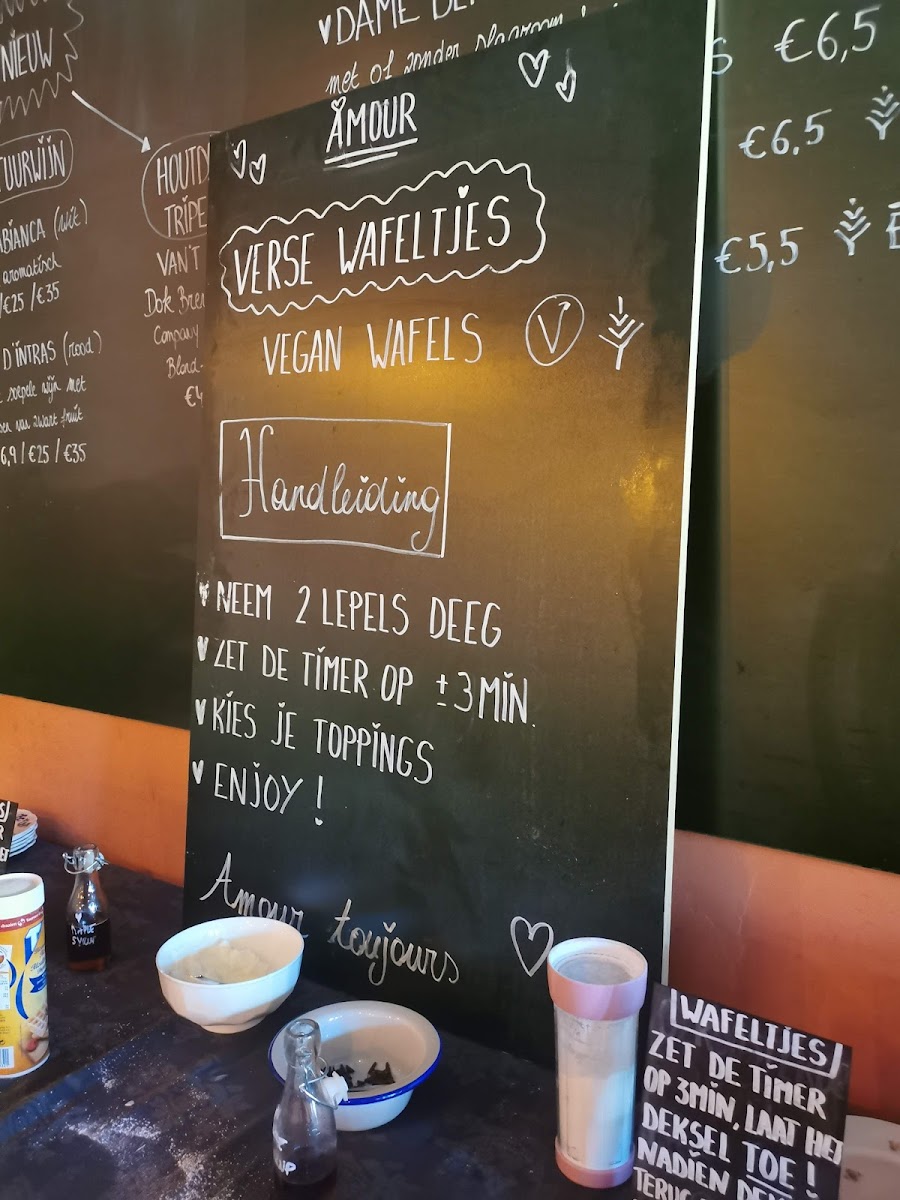 NIEUW
TUURWIJN
ABIANCA (wit)
aromatisch
/€25 /€35
D'INTRAS (rood)
soepele wijn met
van zwart fruit
6,9 / €25 / €35
TRIPE
VAN'T
Company
Blond-
DAME
met of zonder slagroom
€6,5
€6,5
€5,5
AMOUR
VERSE WAFELTJES
VEGAN WAFELS V
Handleiding
NEEM 2 LEPELS DEEG
ZET DE TIMER OP ±3 MIN.
KIES JE TOPPINGS
ENJOY !
Amour toujours
WAFELTJES
ZET DE TIMER
OP 3MIN, LAAT HET
DEKSEL TOE !
NADIEN DEN
TERUG